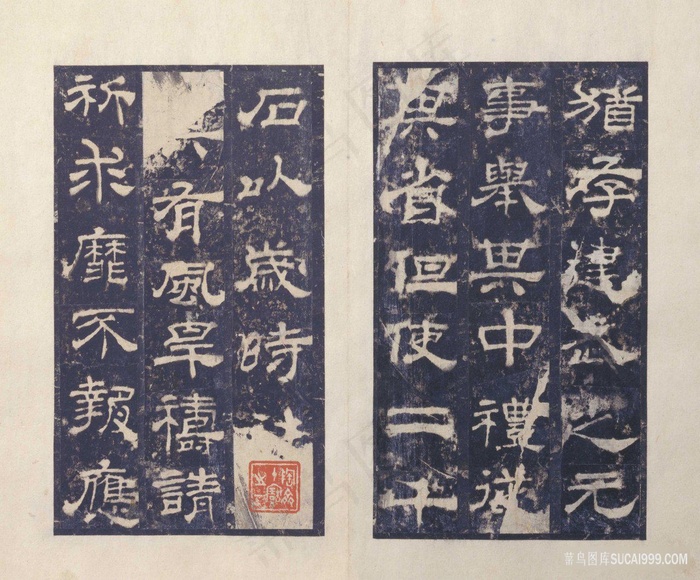 猶存建武之元
事舉其中禮從
其省但使二千
石以歲時往
其有風旱禱請
祈求靡不報應
菜鸟图库SUCAI999.COM